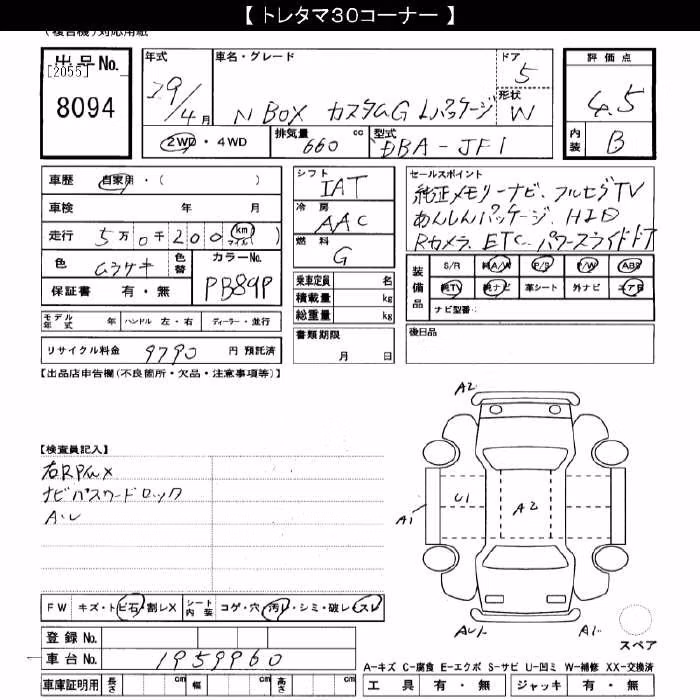 【 トレタマ30コーナー 】
(複合機)対応用紙
出品No.
[2055]
8094
年式
29/4月
車名・グレード
N BOX カスタムG Lパッケージ
ドア
5
形状
W
評価点
4.5
内装
B
2WD・4WD
排気量
660 cc
型式
DBA-JF1
車歴 自家用・( )
車検 年 月
走行 5万0千200 (km マイル)
色
ムラサキ
色替
カラーNo.
PB89P
保証書 有・無
モデル年式 年 ハンドル 左・右 ディーラー・並行
リサイクル料金 9790 円 預託済
シフト
IAT
冷房
AAC
燃料
G
乗車定員 名
積載量 kg
総重量 kg
書類期限
月 日
セールスポイント
純正メモリーナビ、フルセグTV
あんしんパッケージ、HID
Rカメラ、ETC、パワースライドドア
装備品
S/R 純A/W P/S P/W ABS
純TV 純ナビ 革シート 外ナビ エアB
ナビ型番:
後日品
【出品店申告欄(不良箇所・欠品・注意事項等)】
【検査員記入】
ナビパスワードロック
A・U
A2
A1
U1
A2
AU1-
A1-
スペア
FW キズ・トビ石・割レX シート内装 コゲ・穴・汚レ・シミ・破レ・スレ
登録No.
車台No. 1959960
車庫証明用 長さ cm 幅 cm 高さ cm
A-キズ C-腐食 E-エクボ S-サビ U-凹ミ W-補修 XX-交換済
工具 有・無 ジャッキ 有・無